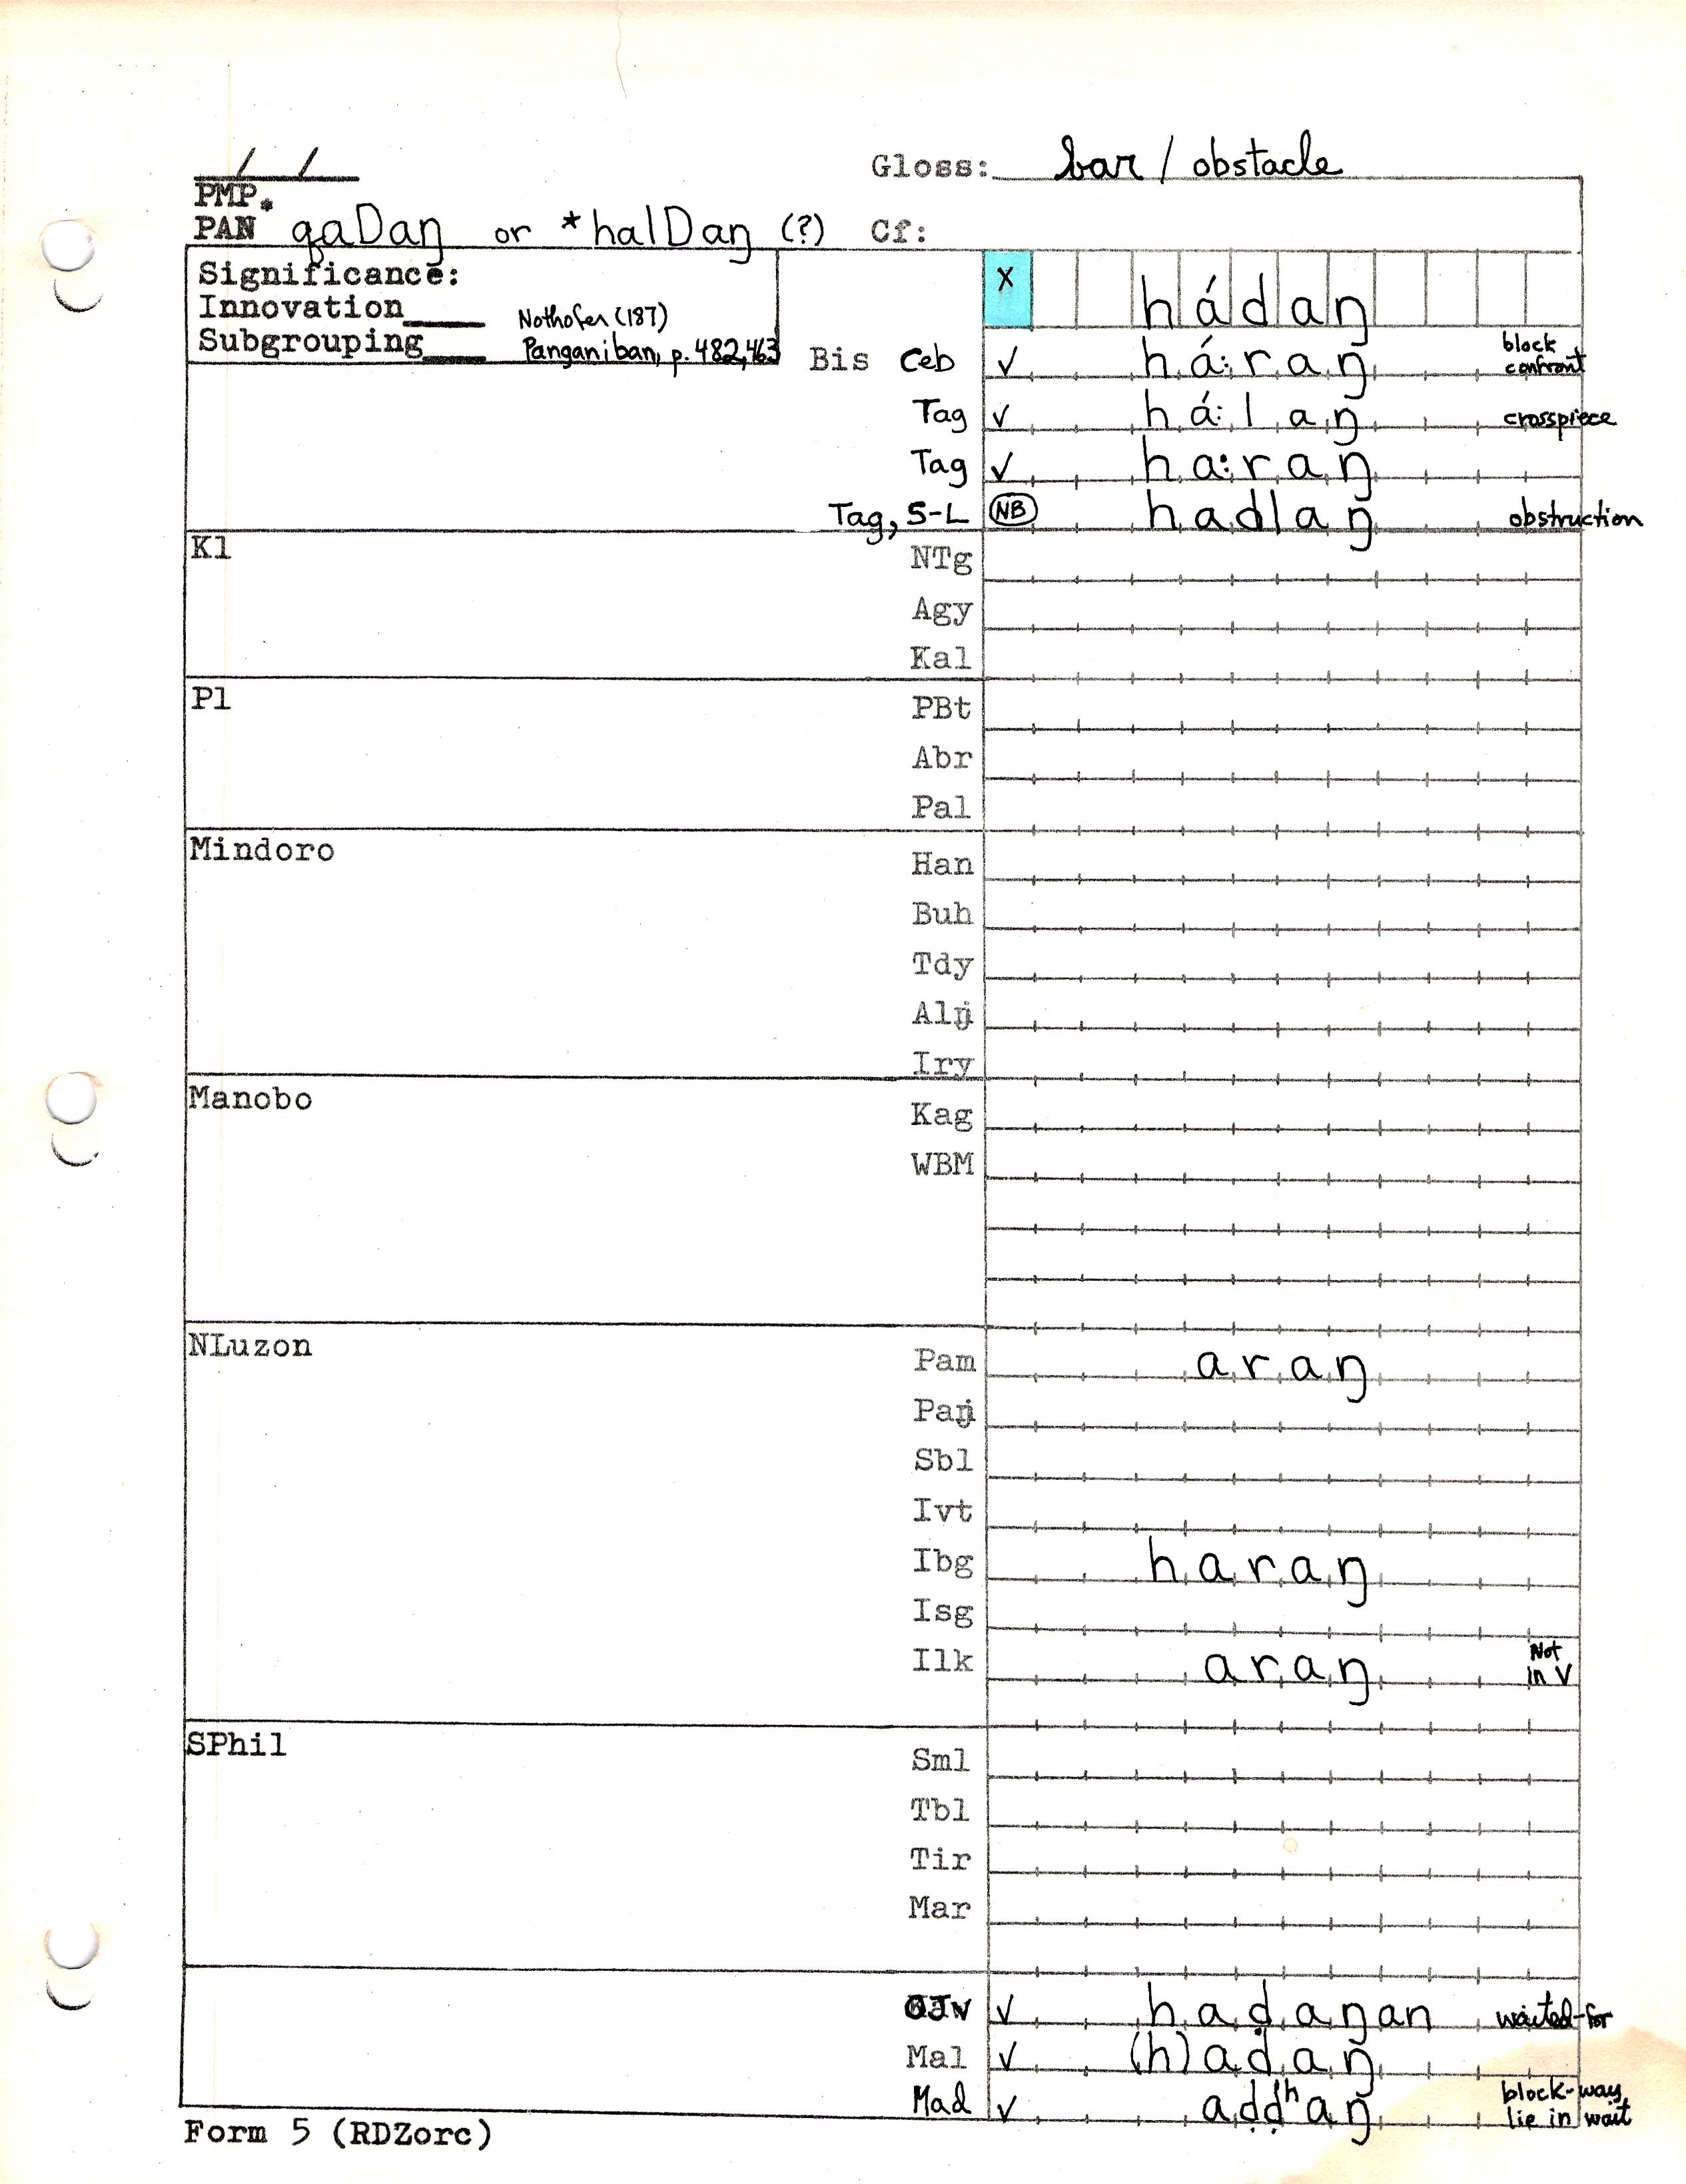 / /
Gloss: bar / obstacle
PMP*
PAN qaDaŋ or *halDaŋ (?) Cf:
Significance: x hádaŋ
Innovation____ Nothofer (187)
Subgrouping____ Panganiban, p. 482,463
Bis Ceb ✓ há:raŋ block confront
Tag ✓ há:laŋ crosspiece
Tag ✓ ha:raŋ
Tag, S-L NB hadlaŋ obstruction
Kl NTg
Agy
Kal
Pl PBt
Abr
Pal
Mindoro Han
Buh
Tdy
Alŋ
Iry
Manobo Kag
WBM
NLuzon Pam araŋ
Paŋ
Sbl
Ivt
Ibg haraŋ
Isg
Ilk araŋ Not in V
SPhil Sml
Tbl
Tir
Mar
OJv ✓ haḍaŋan waited-for
Mal ✓ (h)adaŋ
Mad ✓ aḍḍʰaŋ block-way, lie in wait
Form 5 (RDZorc)